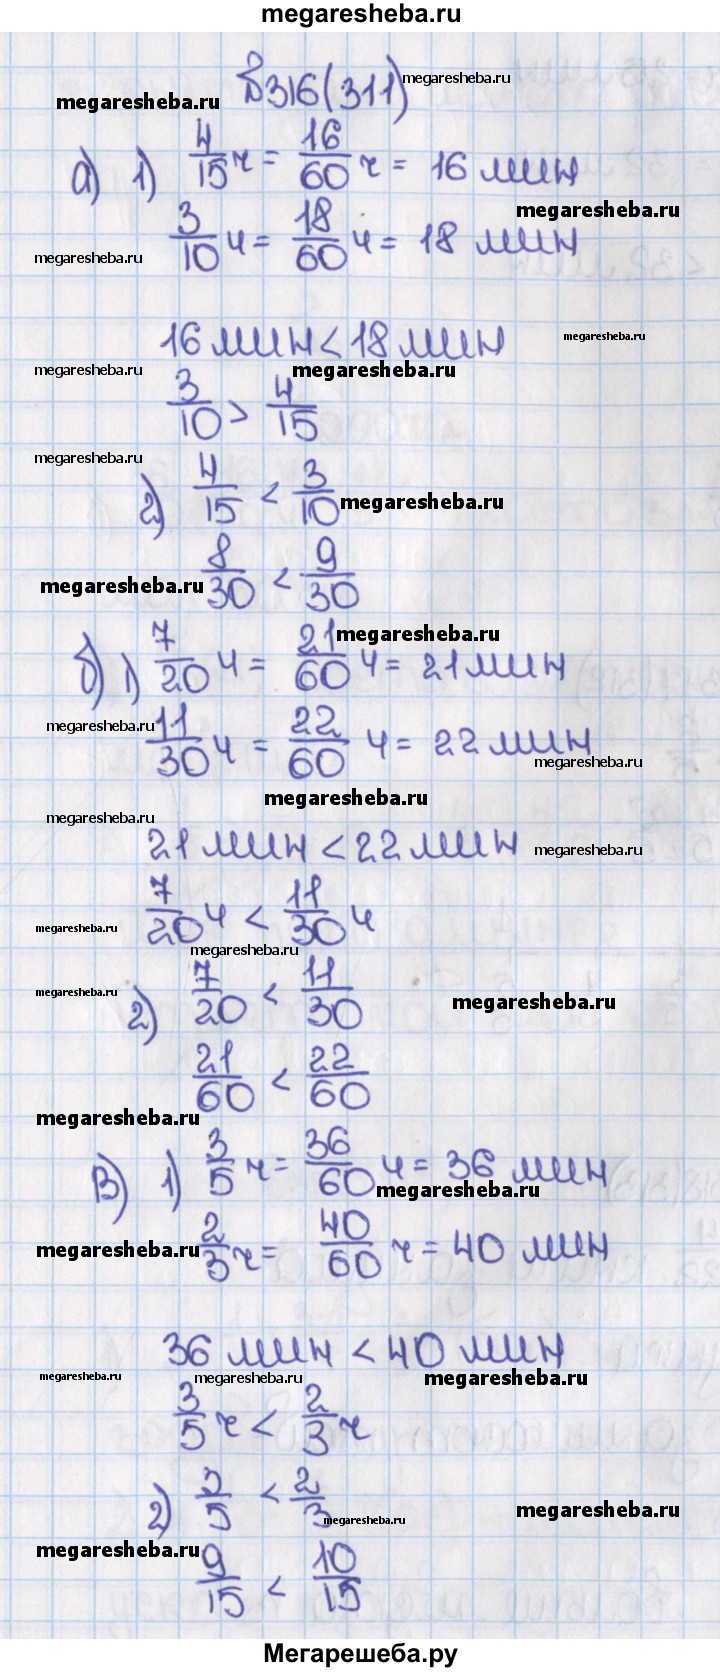 megaresheba.ru
№316(311)
megaresheba.ru
megaresheba.ru
а) 1) 4/15 ч = 16/60 ч = 16 мин
megaresheba.ru
3/10 ч = 18/60 ч = 18 мин
megaresheba.ru
16 мин < 18 мин
megaresheba.ru
megaresheba.ru
megaresheba.ru
3/10 > 4/15
megaresheba.ru
2) 4/15 < 3/10
megaresheba.ru
8/30 < 9/30
megaresheba.ru
megaresheba.ru
б) 1) 7/20 ч = 21/60 ч = 21 мин
megaresheba.ru
11/30 ч = 22/60 ч = 22 мин
megaresheba.ru
megaresheba.ru
megaresheba.ru
21 мин < 22 мин
megaresheba.ru
7/20 ч < 11/30 ч
megaresheba.ru
megaresheba.ru
megaresheba.ru
2) 7/20 < 11/30
megaresheba.ru
21/60 < 22/60
megaresheba.ru
в) 1) 3/5 ч = 36/60 ч = 36 мин
megaresheba.ru
2/3 ч = 40/60 ч = 40 мин
megaresheba.ru
36 мин < 40 мин
megaresheba.ru
megaresheba.ru
megaresheba.ru
3/5 ч < 2/3 ч
2) 3/5 < 2/3
megaresheba.ru
megaresheba.ru
megaresheba.ru
9/15 < 10/15
Мегарешеба.ру